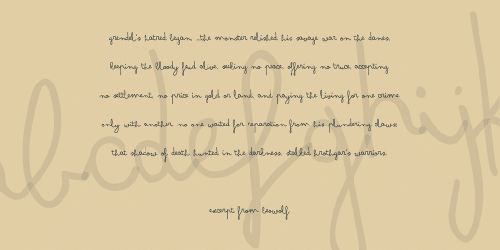 grendel's hatred began, the monster relished his savage war on the danes,
keeping the bloody feud alive, seeking no peace, offering no truce, accepting
no settlement, no price in gold or land, and paying the living for one crime
only with another. no one waited for reparation from his plundering claws:
that shadow of death hunted in the darkness, stalked hrothgar's warriors.
excerpt from beowulf
abcdefghijk